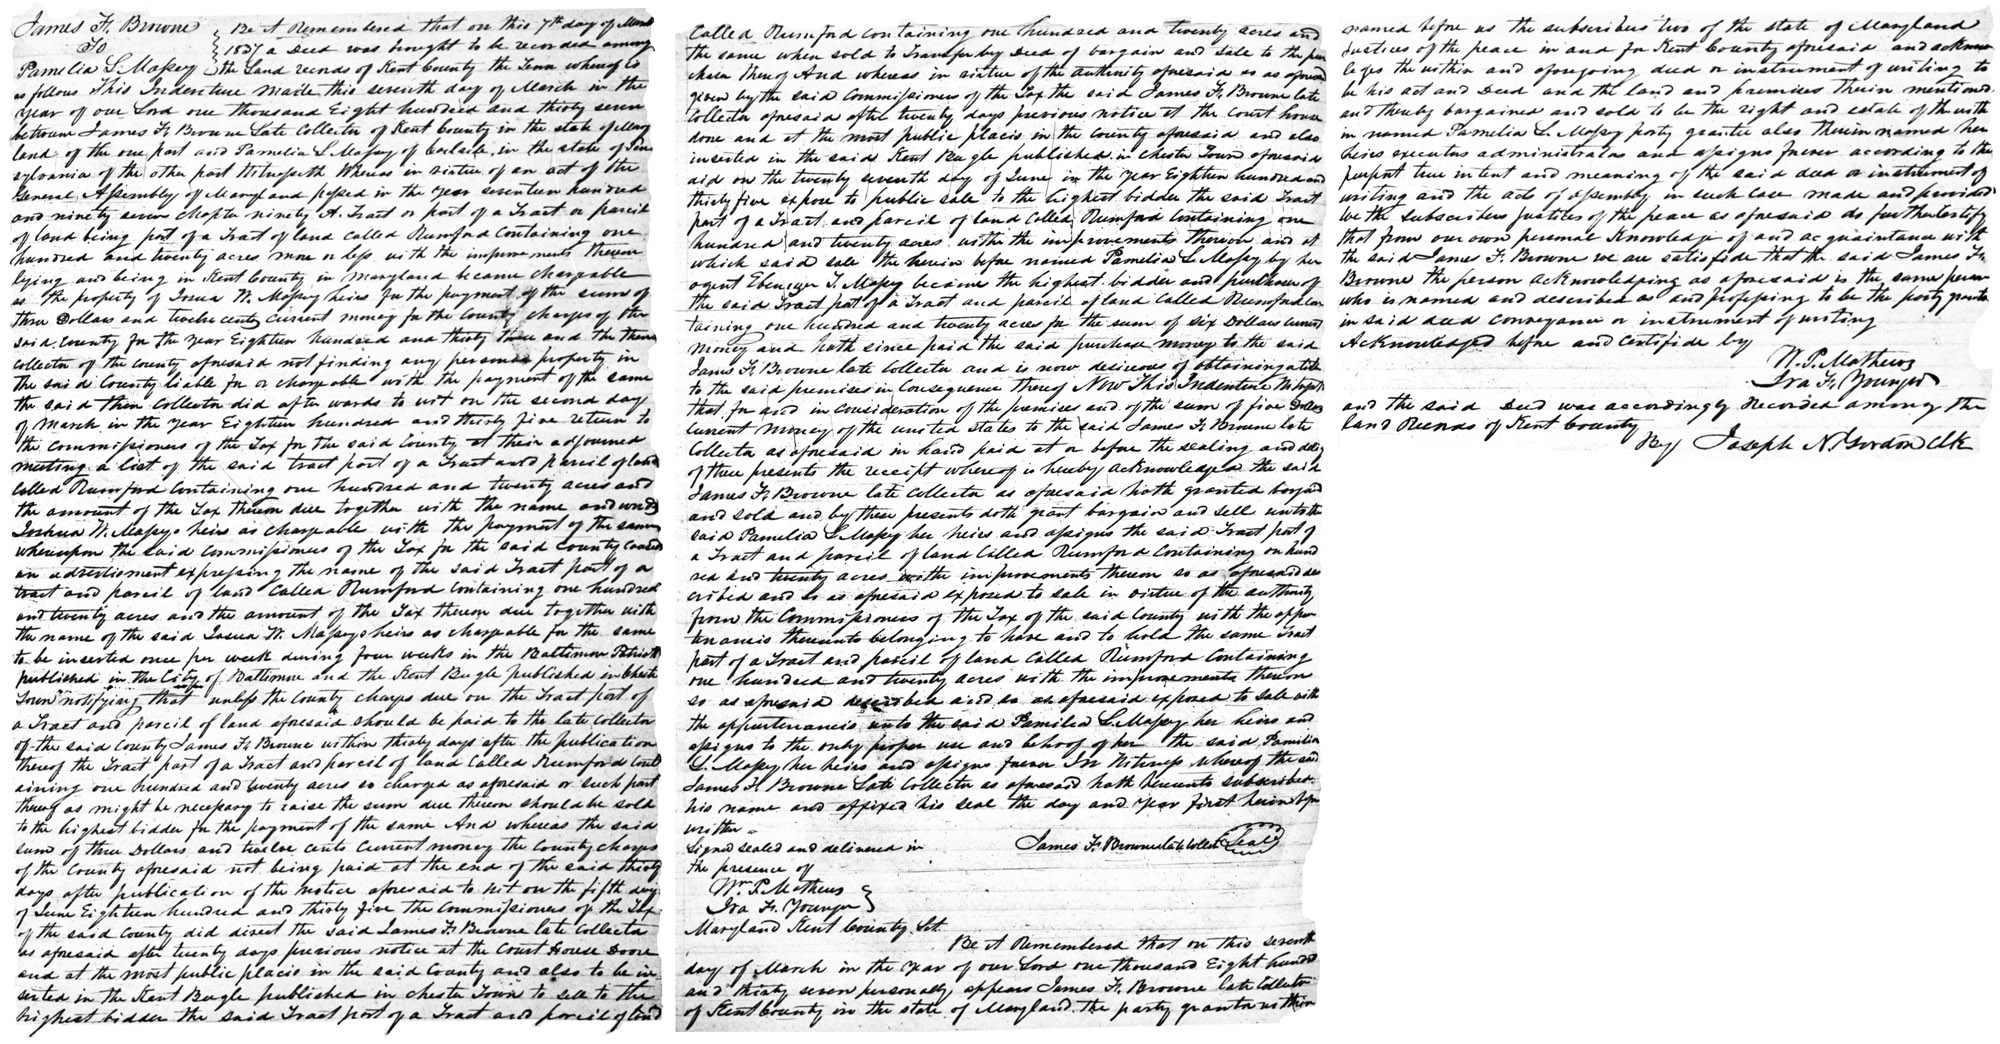 James F. Browne
To
Pamelia L. Massey
Be it Remembered that on this 7th day of March
1837 a Deed was brought to be recorded among
the Land records of Kent County the Tenor whereof is
as follows This Indenture Made this seventh day of March in the
year of our Lord one thousand Eight hundred and thirty seven
between James F. Browne Late Collector of Kent County in the state of Mary
land of the one part and Pamelia L Massey of Carlisle in the state of Penn
sylvania of the other part Witnesseth Whereas in virtue of an act of the
General Assembly of Maryland passed in the year seventeen hundred
and ninety seven chapter ninety A. Tract or part of a Tract or parcel
of land being part of a Tract of land called Rumford containing one
hundred and twenty acres more or less with the improvements thereon
lying and being in Kent County in Maryland became chargeable
as the property of Josua W. Massey heirs for the payment of the sum of
three Dollars and twelve cents current money for the County charges of the
said County for the year Eighteen hundred and thirty three and the then
collector of the county aforesaid not finding any personal property in
the said County liable for or chargeable with the payment of the same
the said then Collector did after wards to wit on the second day
of March in the year Eighteen hundred and thirty five return to
the commissioners of the Tax for the said County at their adjourned
meeting a list of the said tract part of a Tract and parcel of land
called Rumford Containing one hundred and twenty acres and
the amount of the Tax thereon due together with the name and words
Joshua W. Masseys heirs as chargeable with the payment of the same
whereupon the said commissioners of the Tax for the said County caused
an advertisment expressing the name of the said Tract part of a
tract and parcel of land called Rumford containing one hundred
and twenty acres and the amount of the Tax thereon due together with
the name of the said Josua W. Masseys heirs as chargeable for the same
to be inserted once per week during four weeks in the Baltimore Patriot
published in the City of Baltimore and the Kent Bugle published in Chester
Town notifying that unless the County charges due on the Tract part of
a Tract and parcel of land aforesaid should be paid to the late Collector
of the said County James F. Browne within thirty days after the publication
thereof the Tract part of a Tract and parcel of land called Rumford Cont
aining one hundred and twenty acres so charged as aforesaid or such part
thereof as might be necessary to raise the sum due thereon should be sold
to the highest bidder for the payment of the same And whereas the said
sum of three Dollars and twelve cents current money the County charges
of the County aforesaid not being paid at the end of the said thirty
days after publication of the notice aforesaid to wit on the fifth day
of June Eighteen hundred and thirty five the commissioners of the Tax
of the said County did direct the said James F. Browne late Collector
as aforesaid after twenty days previous notice at the Court House Doore
and at the most public places in the said County and also to be in
serted in the Kent Bugle published in chester Town to sell to the
highest bidder the said Tract part of a Tract and parcel of land
Called Rumford containing one hundred and twenty acres and
the same when sold to Transfer by Deed of bargain and sale to the pur
chaser thereof And whereas in virtue of the authority aforesaid so as aforesaid
given by the said commissioners of the Tax the said James F. Browne late
Collector aforesaid after twenty days previous notice at the Court house
done and at the most public placis in the county aforesaid and also
inserted in the said Kent Bugle published in chester Town aforesaid
did on the twenty seventh day of June in the year Eighteen hundred and
thirty five expose to public sale to the highest bidder the said Tract
part of a Tract and parcel of land Called Rumford Containing one
hundred and twenty acres with the improvements thereon and at
which said sale the herein before named Pamelia L Massey by her
agent Ebenezer T. Massey became the highest bidder and purchaser of
the said Tract part of a Tract and parcel of land called Rumford con
taining one hundred and twenty acres for the sum of six Dollars current
money and hath since paid the said purchase money to the said
James F. Browne late collector and is now desireous of obtaining a title
to the said premises in Consequence thereof Now This Indenture Witnesseth
that for and in consideration of the premises and of the sum of five Dollars
Current Money of the united states to the said James F. Browne late
Collector as aforesaid in hand paid at or before the sealing and delivery
of these presents the receipt whereof is hereby acknowledged the said
James F. Browne late collector as aforesaid hath granted bargained
and sold and by these presents doth grant bargain and sell unto the
said Pamelia L Massey her heirs and assigns the said Tract part of
a Tract and parcel of land Called Rumford Containing on hund
red and twenty acres with the improvements thereon so as aforesaid des
cribed and so as aforesaid exposed to sale in virtue of the authority
from the Commissioners of the Tax of the said County with the appur
tenancis thereunto belonging to have and to hold the same Tract
part of a Tract and parcel of land Called Rumford Containing
one hundred and twenty acres with the improvements thereon
so as aforesaid described and so as aforesaid exposed to sale with
the appurtenancis unto the said Pamilia L. Massey her heirs and
assigns to the only proper use and behoof of her the said Pamilia
L. Massey her heirs and assigns forever In Witness whereof the said
James F. Browne Late Collector as aforesaid hath hereunto subscribed
his name and affixed his seal the day and year first herein before
written
Signed sealed and delivered in
the presence of
James F. Browne late Collect Seal
Wm. P. Mathews
Ira F. Younger
Maryland Kent County Sct
Be it Remembered that on this seventh
day of March in the year of our Lord one thousand Eight hundred
and thirty seven personally appears James F. Browne late Collector
of Kent County in the state of Maryland the party grantor within
named before us the subscribers two of the state of Maryland
Justices of the peace in and for Kent County aforesaid and acknow
leges the within and aforegoing deed or instrument of writing to
be his act and Deed and the land and premises therein mentioned
and thereby bargained and sold to be the right and estate of the with
in named Pamelia L. Massey party grantee also therein named her
heirs executors administrators and assigns forever according to the
purport true intent and meaning of the said deed or instrument of
writing and the acts of assembly in such case made and provided
We the subscribers Justices of the peace as aforesaid do further certify
that from our own personal Knowledge of and acquaintance with
the said James F. Browne we are satisfide that the said James F.
Browne the person acknowledging as aforesaid is the same person
who is named and described as and professing to be the party grantor
in said deed conveyance or instrument of writing
Acknowledged before and certifide by
W. P. Mathews
Ira F. Younger
and the said Deed was accordingly Recorded among the
Land Records of Kent County
By Joseph N. Gordon Clk